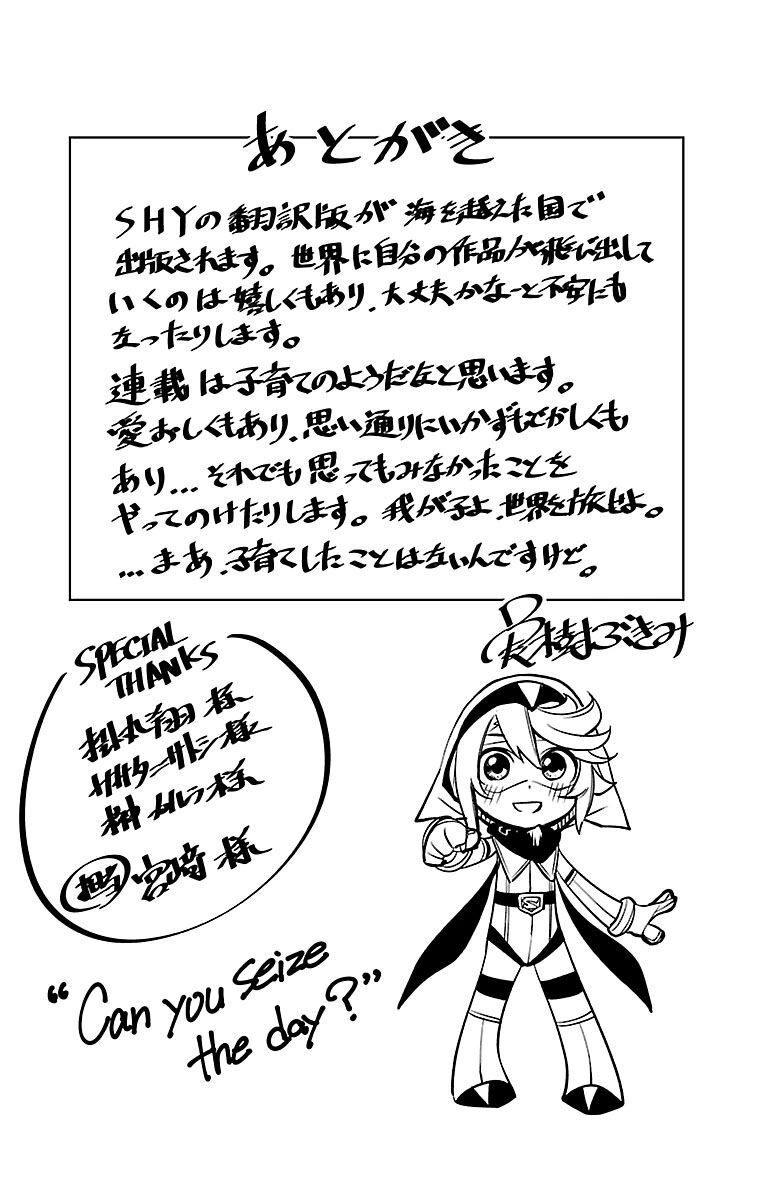 あとがき
SHYの翻訳版が海を越えた国で
出版されます。世界に自分の作品が飛び出して
いくのは嬉しくもあり、大丈夫かなーと不安にも
なったりします。
連載は子育てのようだなと思います。
愛おしくもあり、思い通りにいかずもどかしくも
あり…それでも思ってもみなかったことを
やってのけたりします。我が子よ、世界を旅せよ。
…まあ、子育てしたことはないんですけど。
実樹ぶきみ
SPECIAL
THANKS
掛丸翔 様
ササターサトシ 様
榊 様
担当 宮崎 様
"Can you seize
the day?"
S